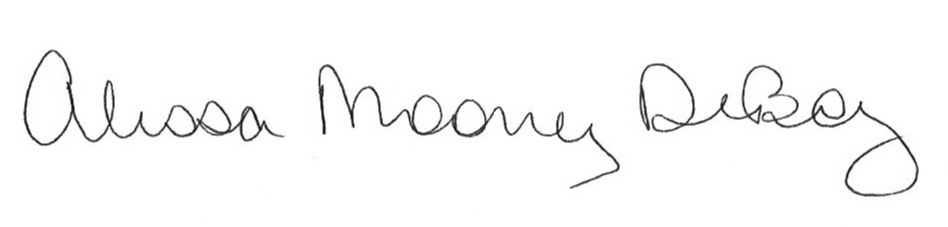 Alissa Mooney DeBoy